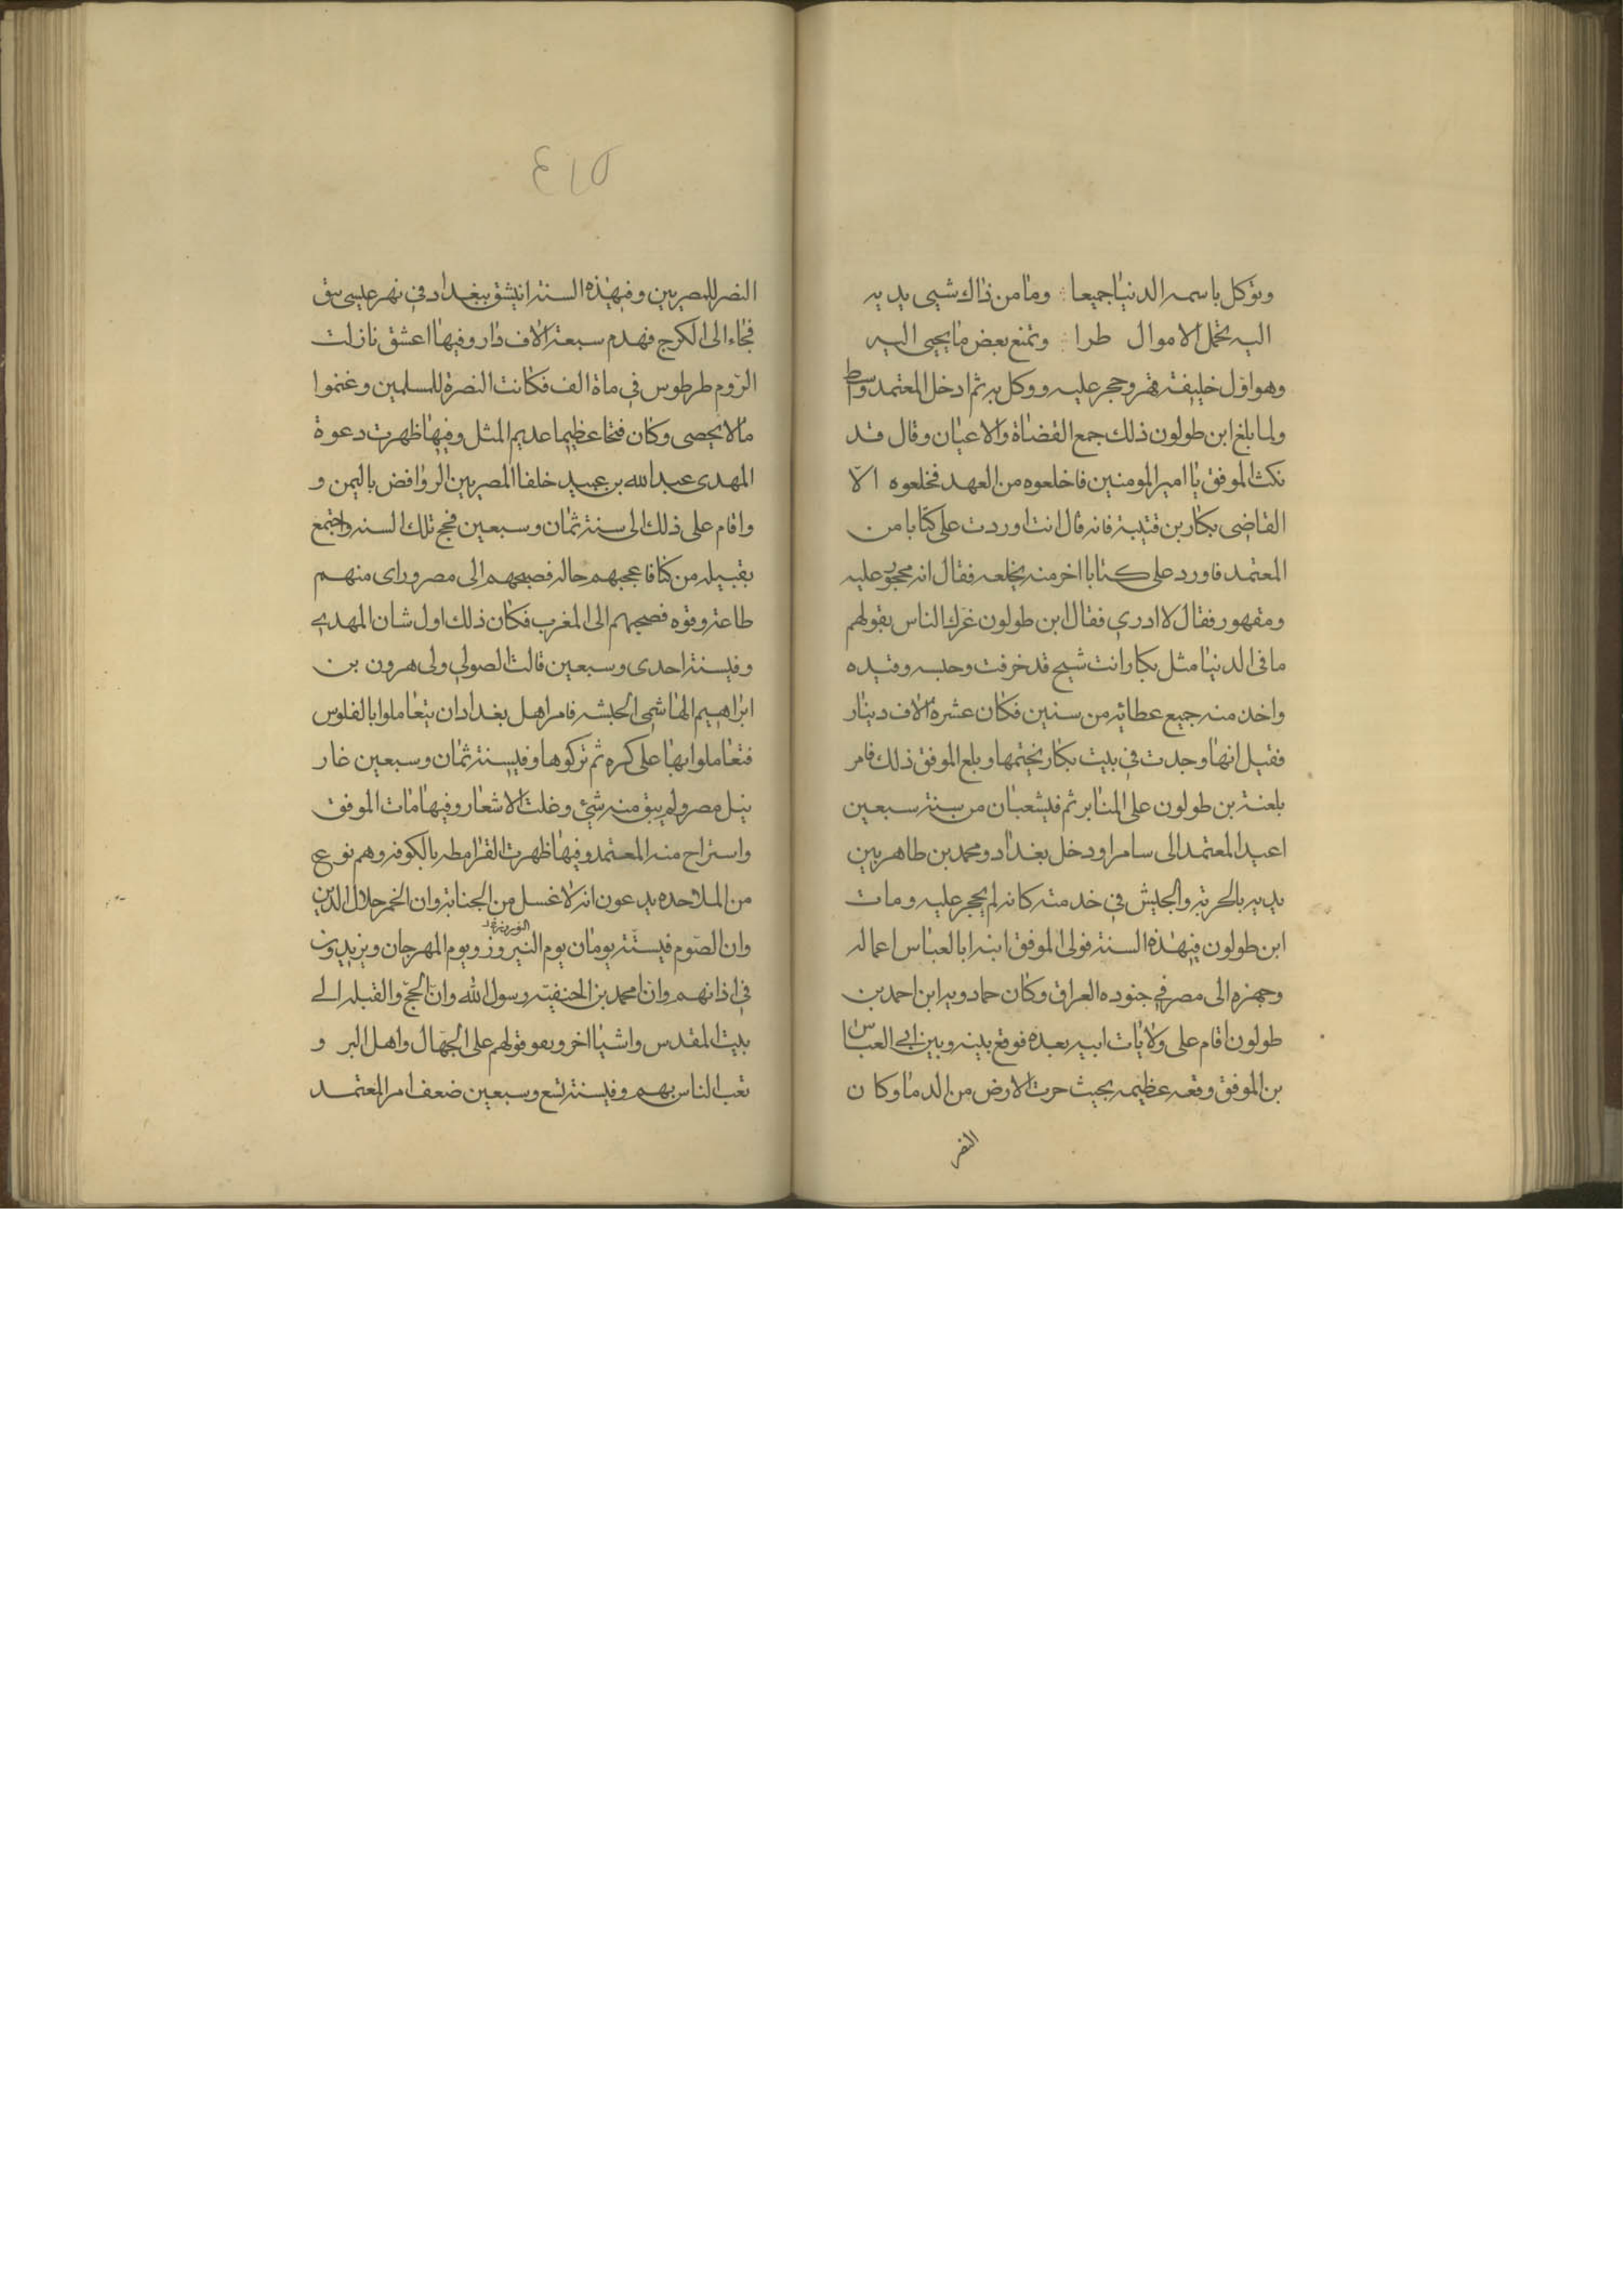 وتوكل باسمه الدنيا جميعا وما من ذاك شيى يديه
اليه تحمل الاموال طرا وتمنع بعض ما يجيى اليه
وهو اول خليفة قهر وحجر عليه ووكل به ثم ادخل المعتمد واسط
ولما بلغ ابن طولون ذلك جمع القضاة والاعيان وقال قد
نكث الموفق يا امير المومنين فاخلعوه من العهد فخلعوه الا
القاضى بكار بن قتيبة فانه قال انت اوردت على كتابا من
المعتمد فاورد على كتابا اخر منه يخلعه فقال انه محجور عليه
ومقهور فقال لا ادري فقال ابن طولون غرك الناس بقولهم
ما فى الدنيا مثل بكار انت شيح قد خرفت وحبسه وقيده
واخذ منه جميع عطائه من سنين فكان عشرة الاف دينار
فقيل انها وجدت في بيت بكار بختمها وبلع الموفق ذلك فامر
بلعنة بن طولون على المنابر ثم فى شعبان من سنة سبعين
اعيد المعتمد الى سامرا ودخل بغداد ومحمد بن طاهر بين
يديه بالحربة والجيش في خدمته كانه لم يحجر عليه ومات
ابن طولون في هذه السنة فولى الموفق ابنه ابا العباس اعماله
وجهزه الى مصر في جنوده العراق وكان حمادويه ابن احمد بن
طولون اقام على ولايات ابيه بعده فوقع بينه وبين ابي العباس
بن الموفق وقعه عظيمه بحيث جرت الارض من الدما وكان
النضر
٤١٥
النضر للمصريين وفي هذه السنة انيشق ببغداد في نهر عيسى بثق
فجاء الى الكرج فهدم سبعة الاف دار وفيها اعشق نازلت
الروم طرطوس في ماة الف فكانت النصرة للمسلمين وغنموا
مالا يحصى وكان فتحا عظيما عديم المثل وفيها ظهرت دعوة
المهدى عبد الله بن عبيد خلفا المصريين الروافض باليمن و
واقام على ذلك الى سنة ثمان وسبعين فحج تلك السنه واجتمع
بقبيله من كتافا عجبهم حاله فصبحهم الى مصر وراى منهم
طاعة وقوه فصحبهم الى المغرب فكان ذلك اول شان المهدي
وفى سنة احدى وسبعين قالت الصولي ولى هرون بن
ابراهيم الهاشمى الحبشه فامر اهل بغداد ان يتعاملوا بالفلوس
فتعاملوا بها على كره ثم تركوها وفى سنة ثمان وسبعين غار
نيل مصر ولم يبق منه شئ وغلت الاشعار وفيها مات الموفق
واستراح منه المعتمد وفيها ظهرت القرامطه بالكوفه وهم نوع
من الملاحده يدعون انه لا غسل من الجنابة وان الخمر حلال الدين
وان الصوم فى سنة يومان يوم النيروز ويوم المهرجان ويزيدون
في اذانهم وان محمد بن الحنفيته رسول الله وان الحج والقبله الى
بيت المقدس واشيا اخر ويفو قولهم على الجهال واهل البر و
تعب الناس بهم وفى سنة تسع وسبعين ضعف امر المعتمد